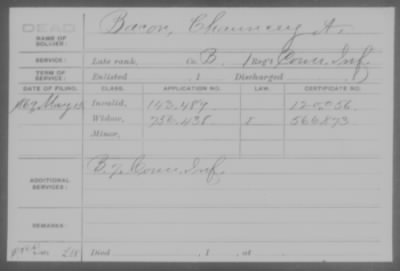 DEAD
NAME OF SOLDIER: Bacon, Chauncey A.
SERVICE: Late rank, Co. B, 1 Reg't Conn. Inf.
TERM OF SERVICE: Enlisted , 1 Discharged
DATE OF FILING. CLASS. APPLICATION NO. LAW. CERTIFICATE NO.
1869 May Invalid, 143.489
Widow, 756.438 566.873
Minor,
ADDITIONAL SERVICES: B. 7. Conn. Inf.
REMARKS:
Died , 1 , at